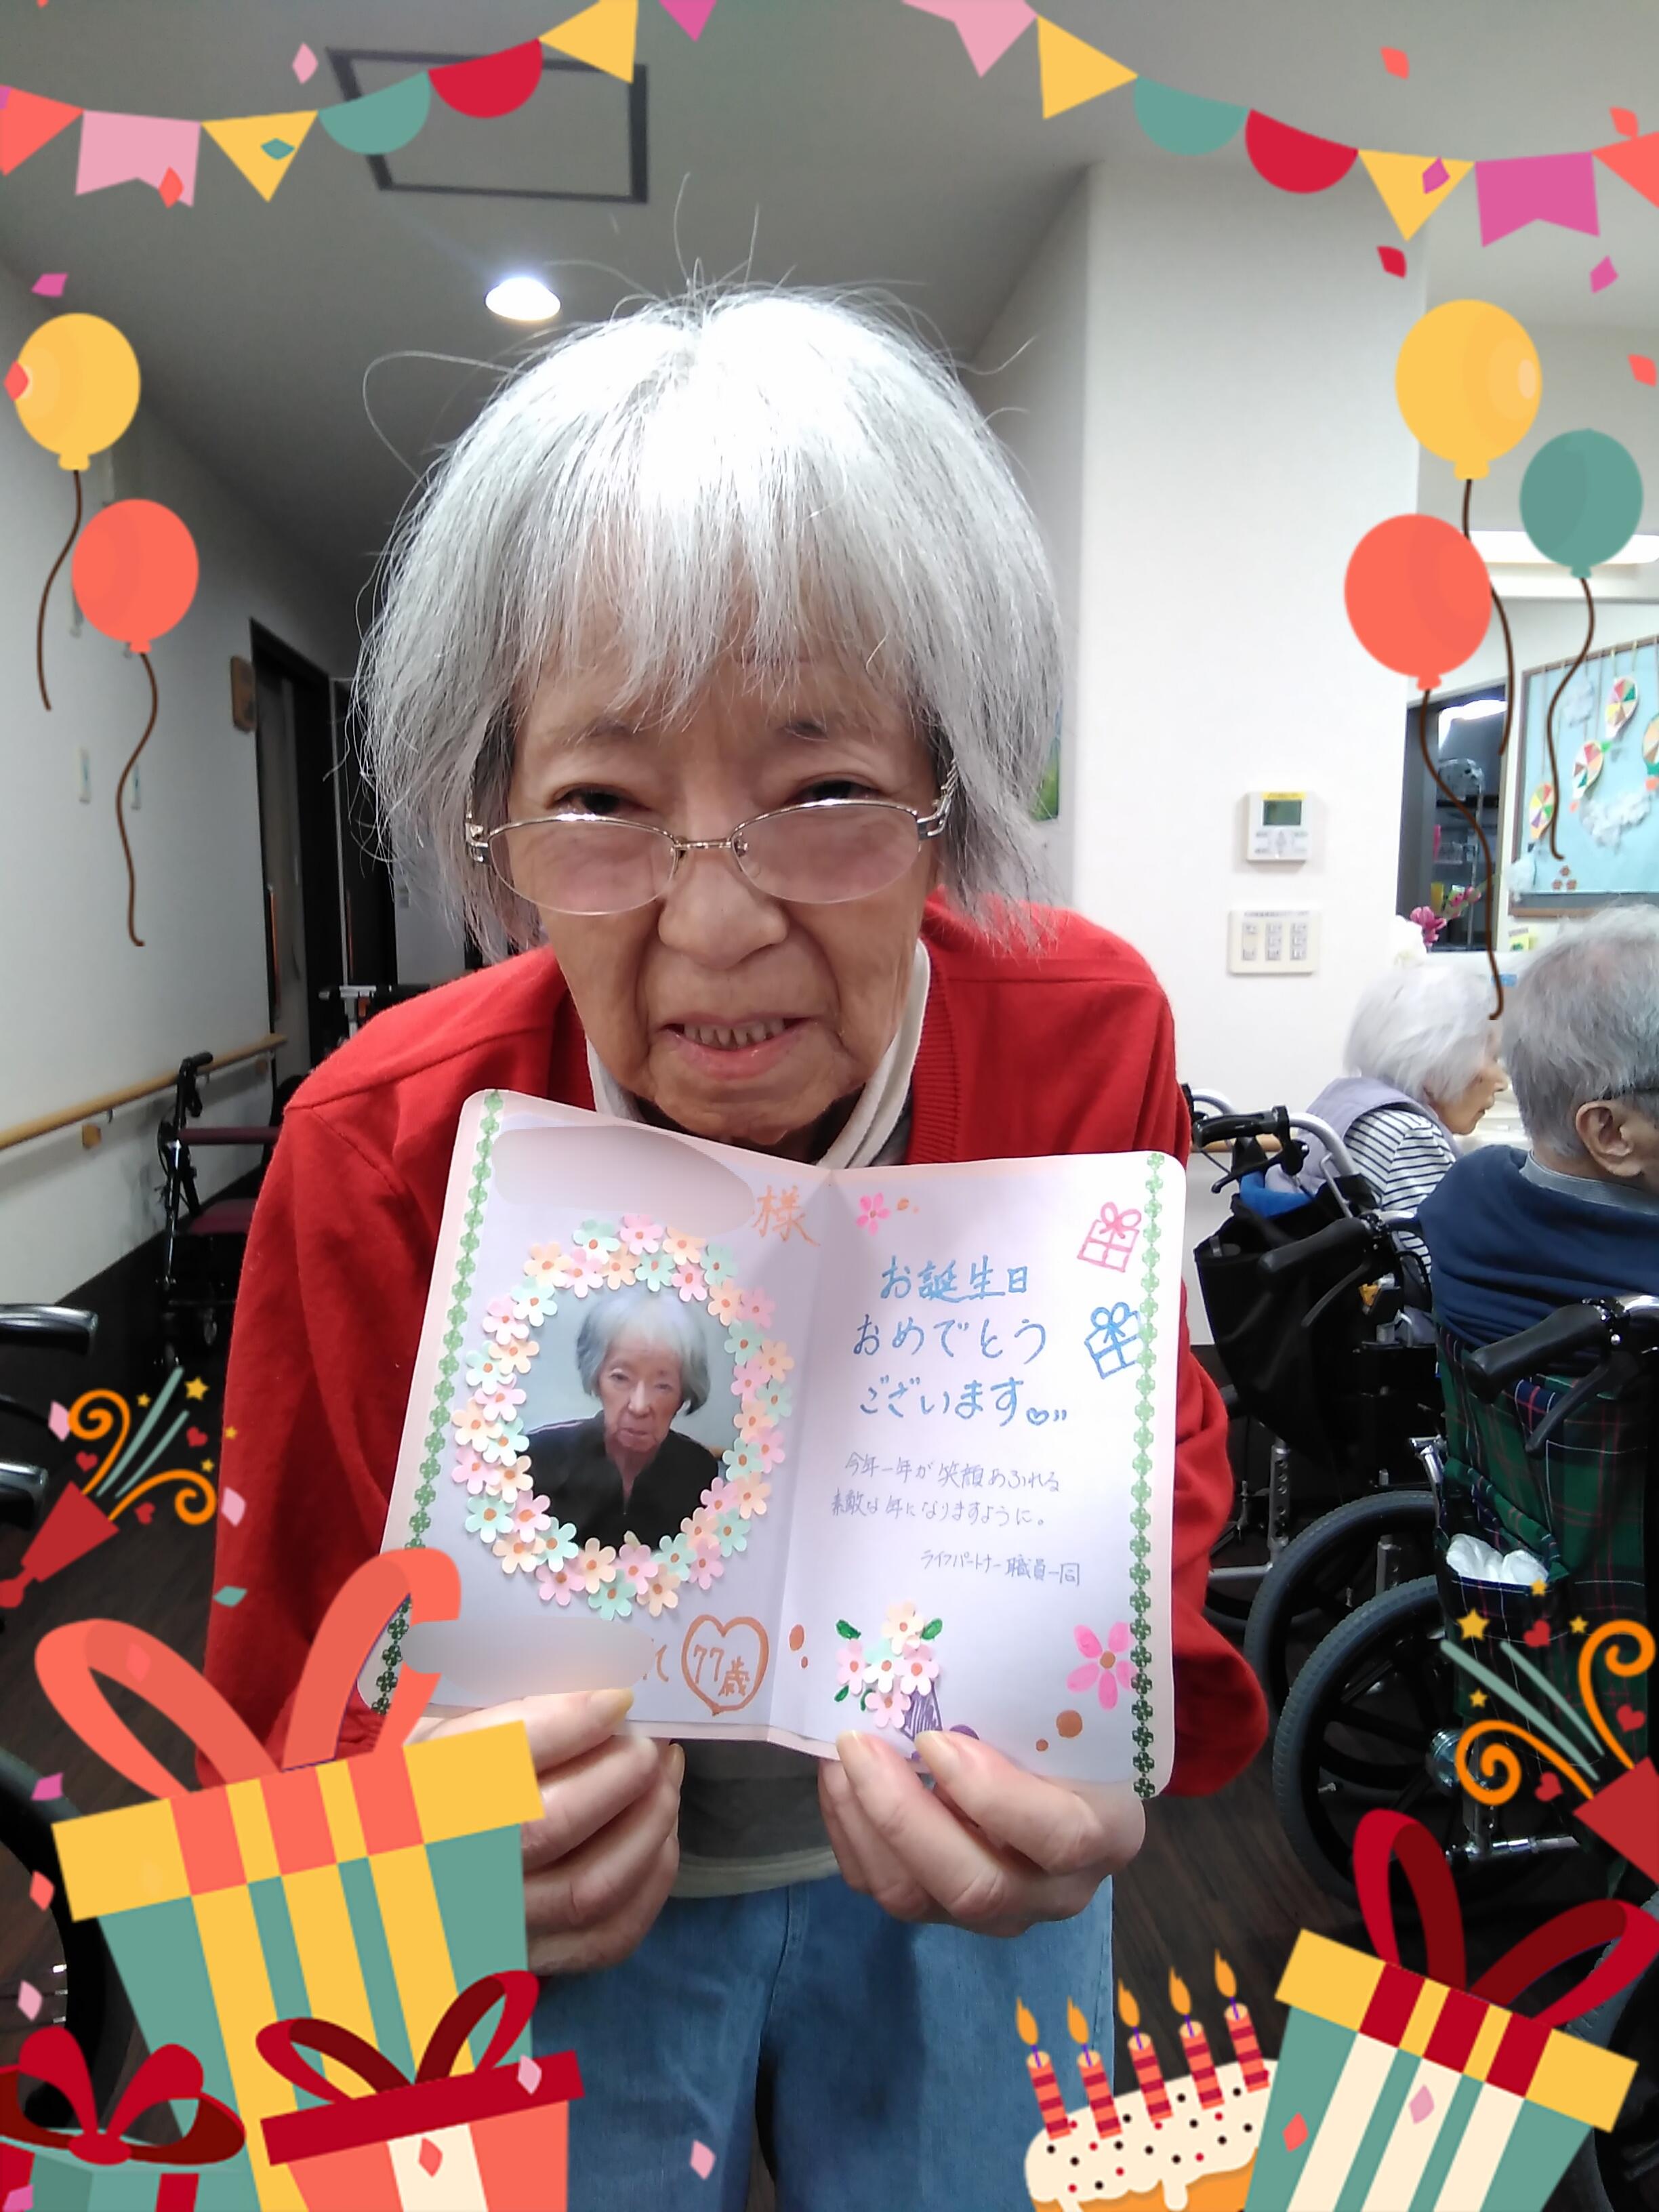 様
て 77歳
お誕生日
おめでとう
ございます。
今年一年が笑顔あふれる
素敵な年になりますように。
ライフパートナー職員一同